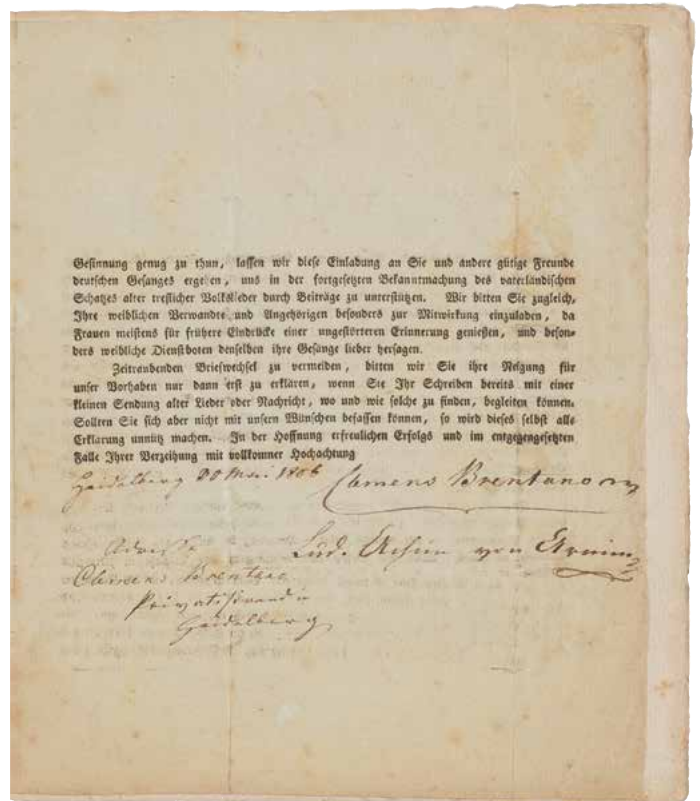 Gesinnung genug zu thun, lassen wir diese Einladung an Sie und andere gütige Freunde
deutschen Gesanges ergehen, uns in der fortgesetzten Bekanntmachung des vaterländischen
Schatzes alter treflicher Volkslieder durch Beiträge zu unterstützen. Wir bitten Sie zugleich,
Ihre weiblichen Verwandte und Angehörigen besonders zur Mitwirkung einzuladen, da
Frauen meistens für frühere Eindrücke einer ungestörteren Erinnerung genießen, und beson-
ders weibliche Dienstboten denselben ihre Gesänge lieber hersagen.
Zeitraubenden Briefwechsel zu vermeiden, bitten wir Sie ihre Neigung für
unser Vorhaben nur dann erst zu erklären, wenn Sie Ihr Schreiben bereits mit einer
kleinen Sendung alter Lieder oder Nachricht, wo und wie solche zu finden, begleiten können.
Sollten Sie sich aber nicht mit unsern Wünschen befassen können, so wird dieses selbst alle
Erklärung unnütz machen. In der Hoffnung erfreulichen Erfolgs und im entgegengesetzten
Falle Ihrer Verzeihung mit vollkomner Hochachtung
Heidelberg 1806 Clemens Brentano
Lud. Achim von Arnim
Adresse
Clemens Brentano
Heidelberg